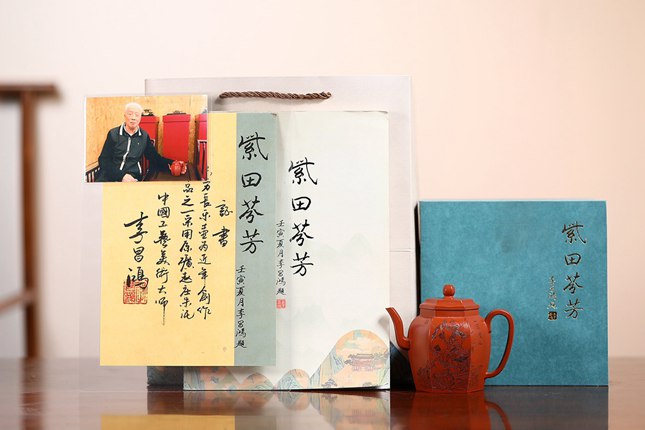 紫田芬芳
壬寅夏月李昌鴻題
証書
方長樂壶為近年創作
品之一采用原礦趙庄朱泥
中國工藝美術大師
李昌鴻
紫田芬芳
壬寅夏月李昌鴻題
紫田芬芳
李昌鴻題